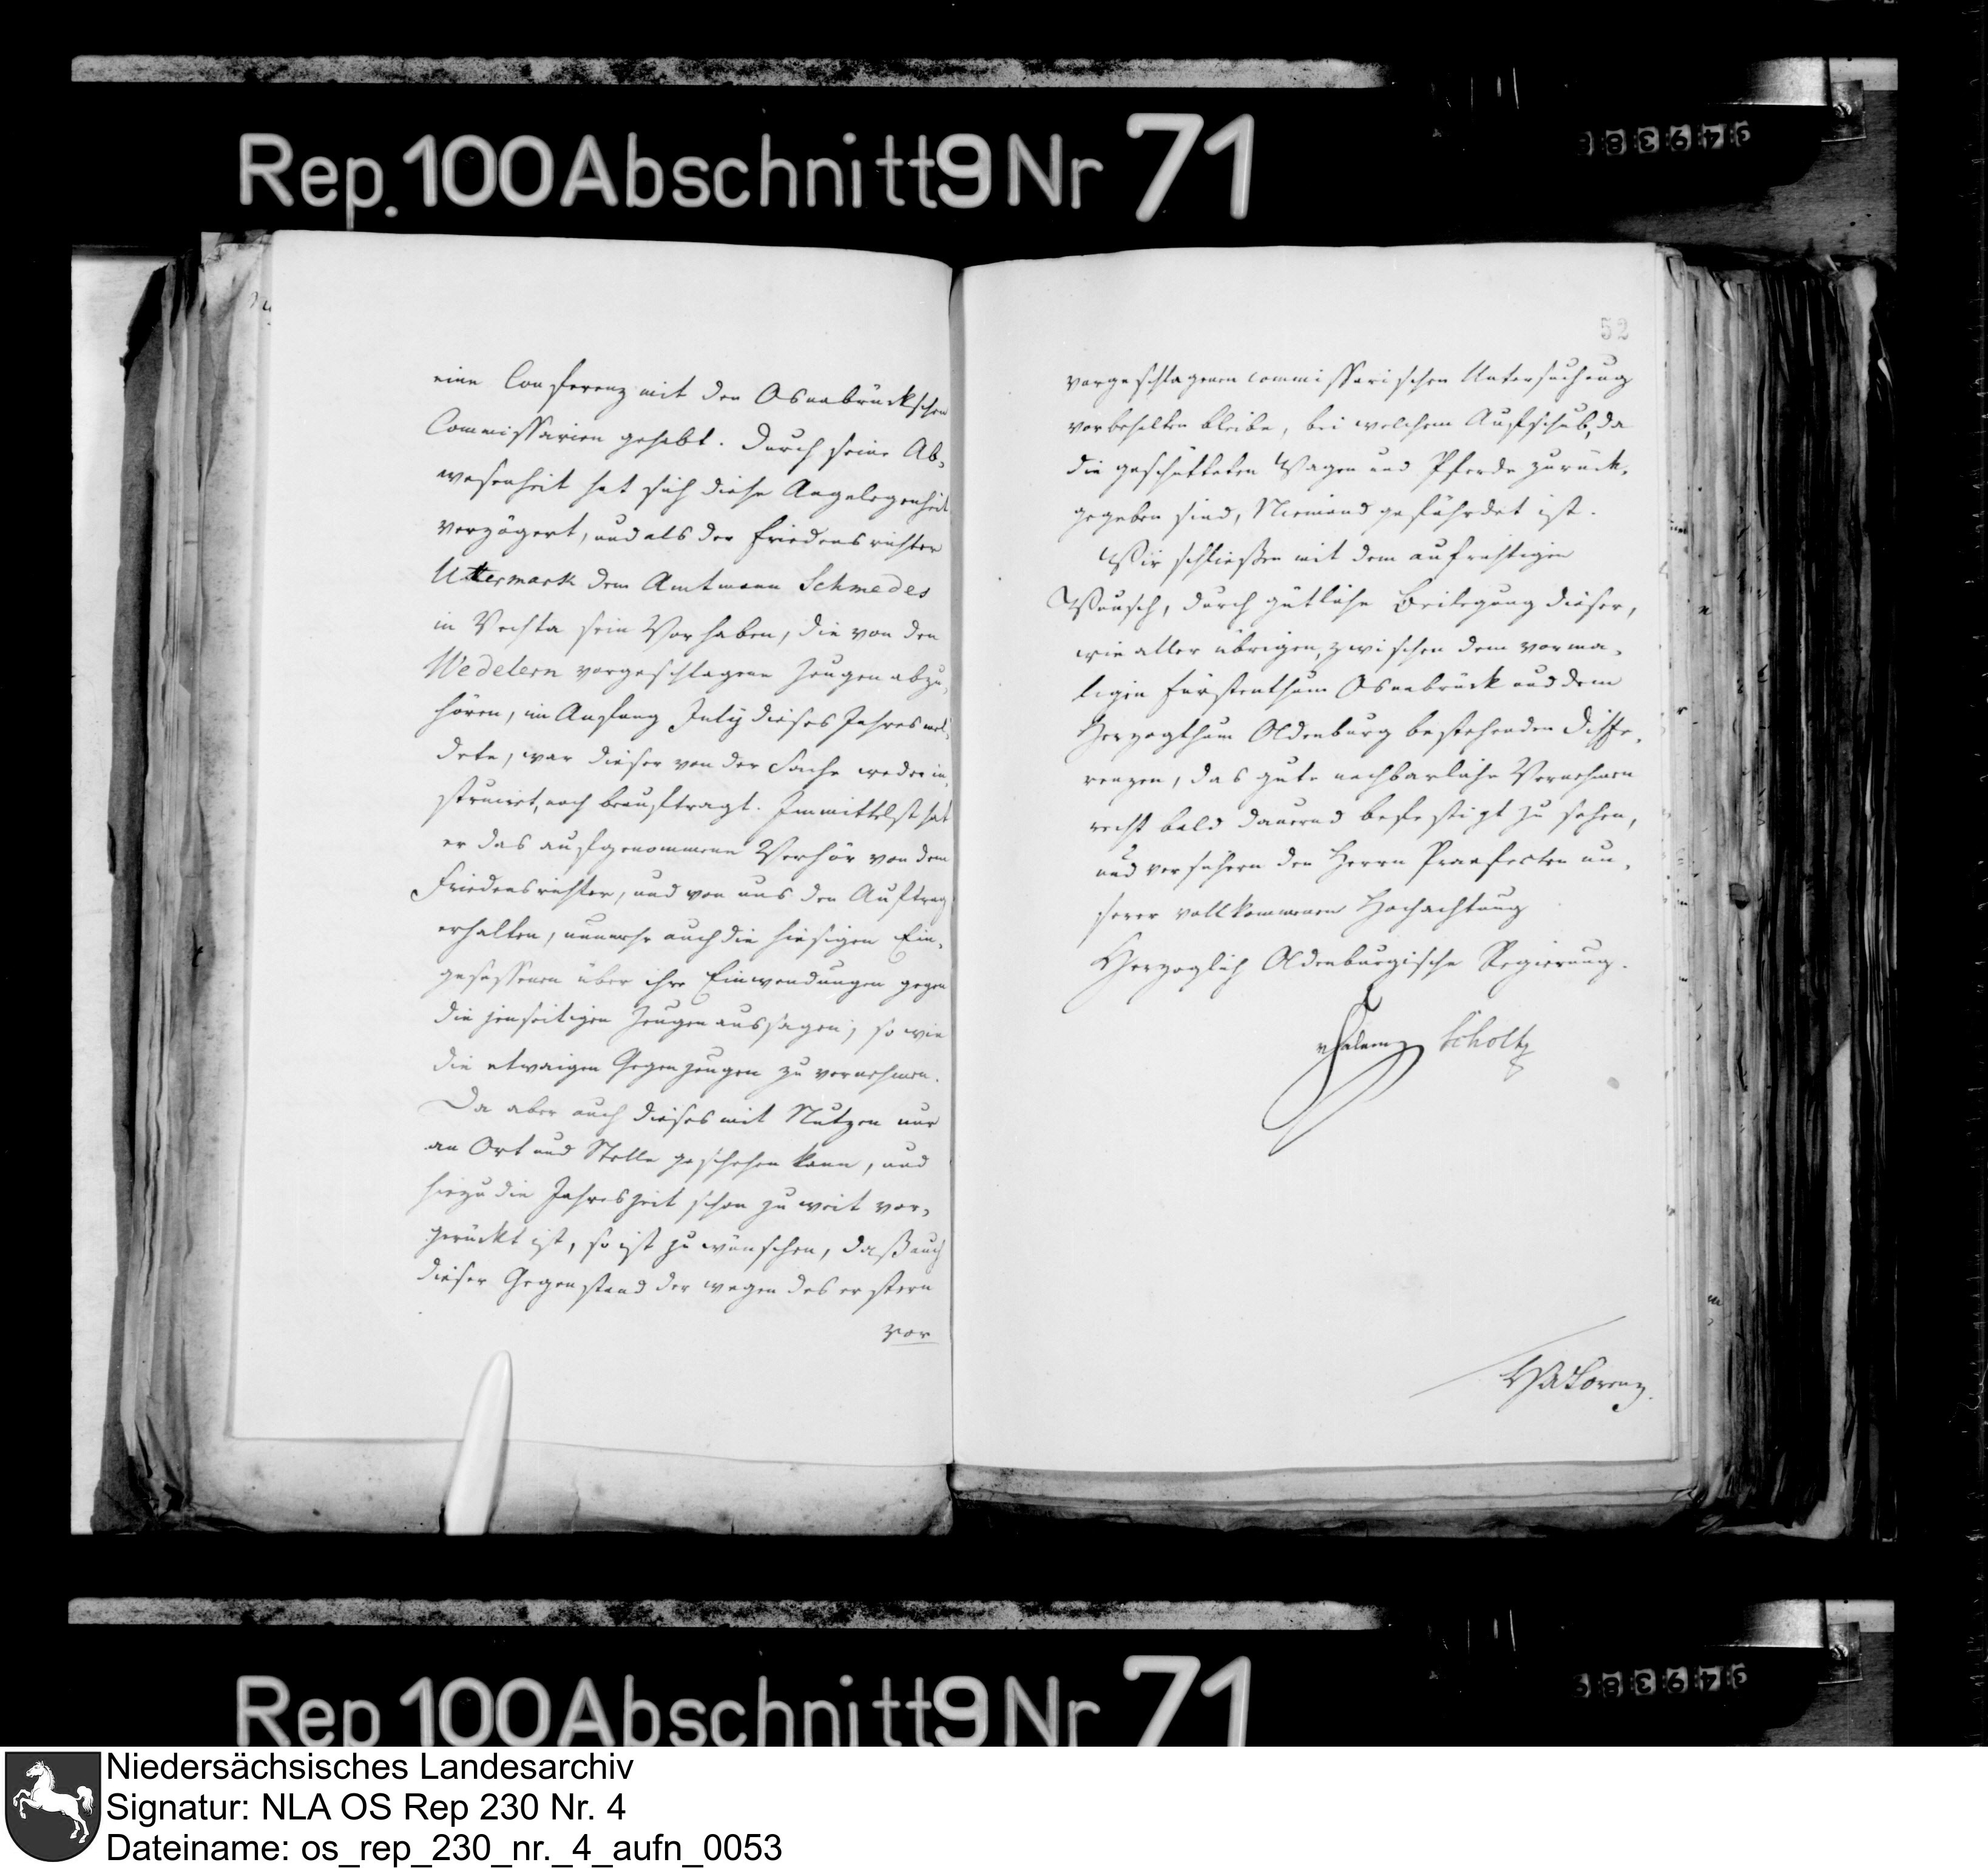 Rep. 100 Abschnitt 9 Nr 71
eine Conferenz mit den Osnabrückschen
Commissarien gehabt. Durch seine Ab-
wesenheit hat sich diese Angelegenheit
verzögert, und als der Friedensrichter
Uttermark dem Amtmann Schmedes
in Vechta sein Vorhaben, die von den
Wedelern vorgeschlagene Zeugen abzu-
hören, im Anfang July dieses Jahres mel-
dete, war dieser von der Sache weder in-
struirt, noch beauftragt. Immittelst hat
er das aufgenommene Verhör von dem
Friedensrichter, und von uns den Auftrag
erhalten, nunmehr auch die hiesigen Ein-
gesessenen über ihre Einwendungen gegen
die jenseitigen Zeugenaussagen, so wie
die etwaigen Gegenzeugen zu vernehmen.
Da aber auch dieses mit Nutzen nur
an Ort und Stelle geschehen kann, und
hiezu die Jahreszeit schon zu weit vor-
gerückt ist, so ist zu wünschen, daß auch
dieser Gegenstand der wegen des erstern
vor
52
vorgeschlagenen commissarischen Untersuchung
vorbehalten bleibe, bei welchem Aufschub, da
die geschütteten Wagen und Pferde zurück-
gegeben sind, Niemand gefährdet ist.
Wir schließen mit dem aufrichtigen
Wunsch, durch gütliche Beilegung dieser,
wie aller übrigen, zwischen dem vorma-
ligen Fürstenthum Osnabrück und dem
Herzogthum Oldenburg bestehenden Diffe-
renzen, das gute nachbarliche Vernehmen
recht bald dauernd befestigt zu sehen,
und versichern den Herrn Praefecten un-
serer vollkommenen Hochachtung
Herzoglich Oldenburgische Regierung.
vHalem Scholtz
Lorenz.
Rep 100 Abschnitt 9 Nr 71
Niedersächsisches Landesarchiv
Signatur: NLA OS Rep 230 Nr. 4
Dateiname: os_rep_230_nr._4_aufn_0053